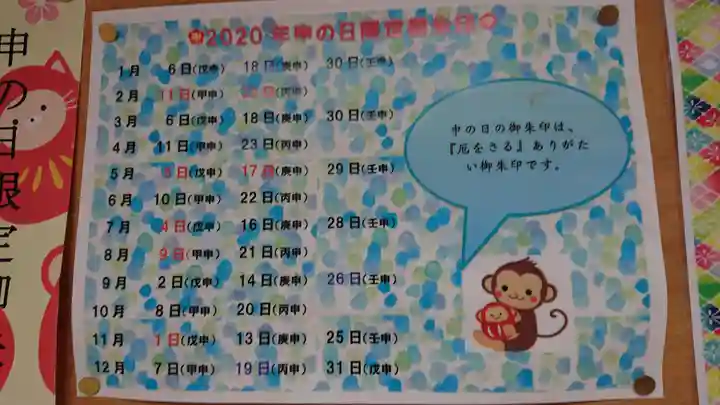 2020年申の日限定御朱印
1月 6日(戊申) 18日(庚申) 30日(壬申)
2月 11日(甲申) 日(丙申)
3月 6日(戊申) 18日(庚申) 30日(壬申)
4月 11日(甲申) 23日(丙申)
5月 5日(戊申) 17日(庚申) 29日(壬申)
6月 10日(甲申) 22日(丙申)
7月 4日(戊申) 16日(庚申) 28日(壬申)
8月 9日(甲申) 21日(丙申)
9月 2日(戊申) 14日(庚申) 26日(壬申)
10月 8日(甲申) 20日(丙申)
11月 1日(戊申) 13日(庚申) 25日(壬申)
12月 7日(甲申) 19日(丙申) 31日(戊申)
申の日の御朱印は、
『厄をさる』ありがた
い御朱印です。
申の日限定御